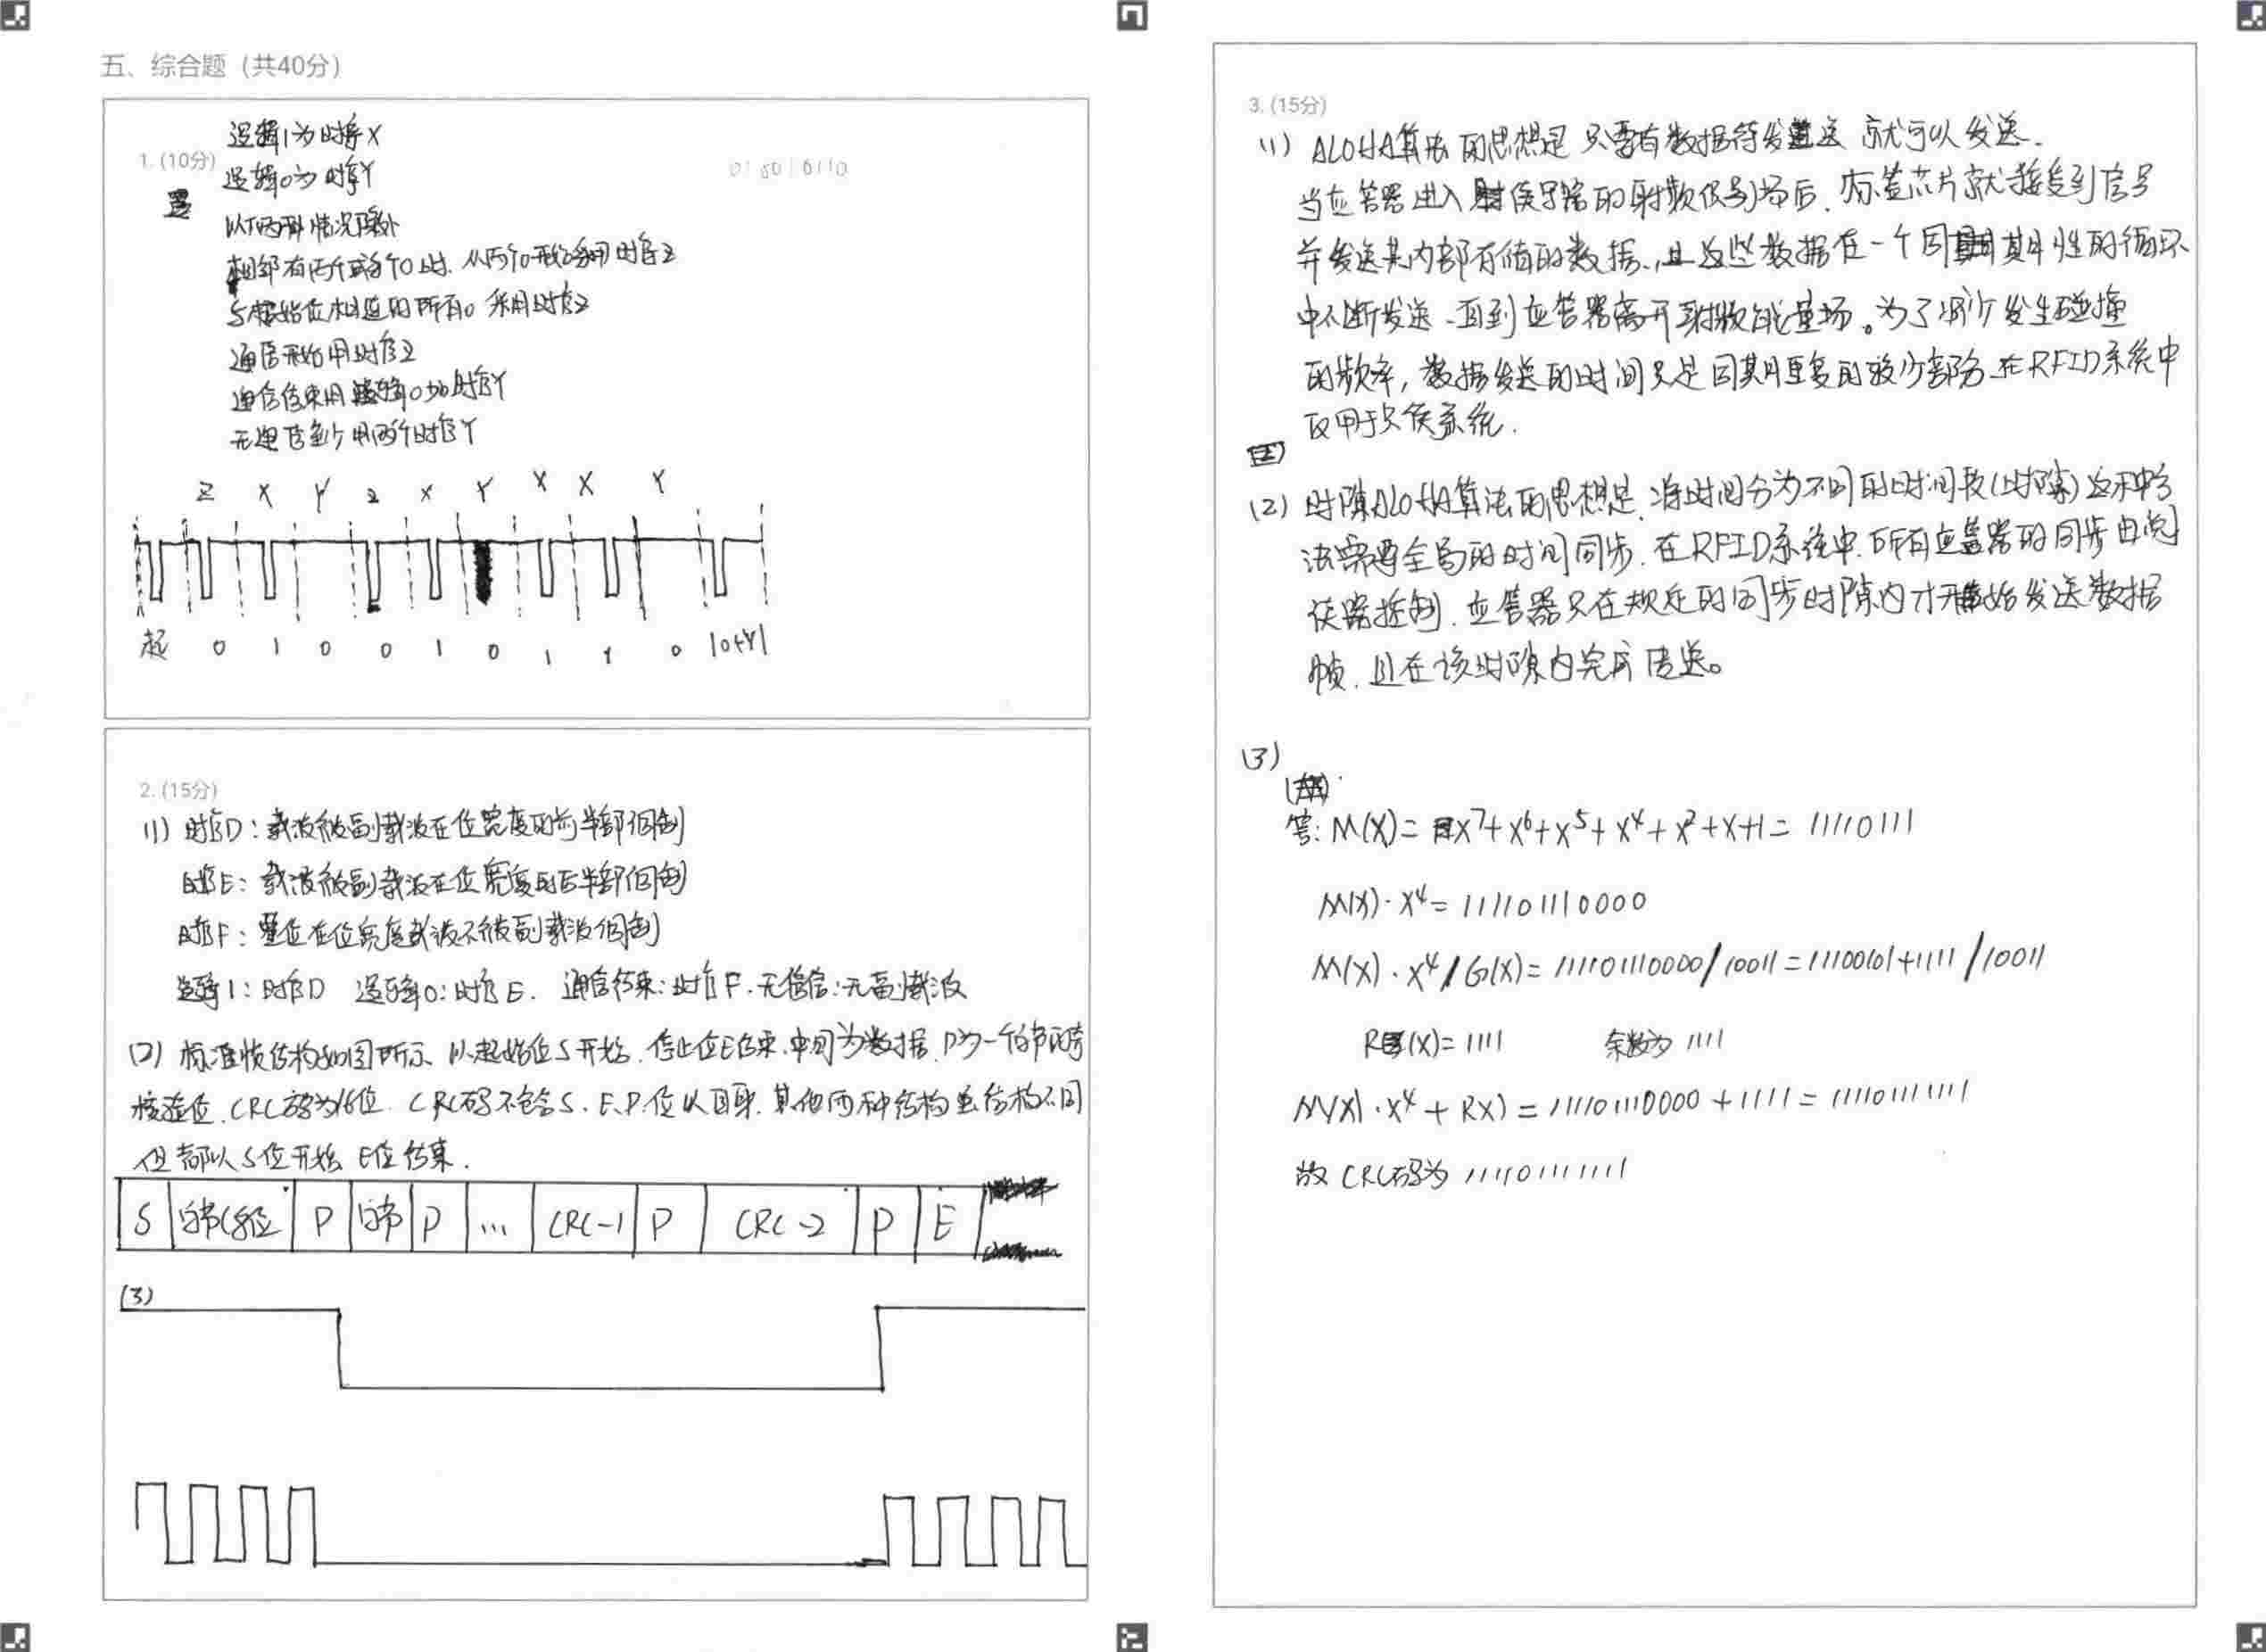 五、综合题（共40分）
1. (10分)
逻辑1为时序X
逻辑0为时序Y
01001010110
以下两种情况除外
相邻有两个或多个0时，从第二个0开始采用时序Z
与起始位相连的所有0采用时序Z
通信开始用时序Z
通信结束用逻辑0加时序Y
无通信至少用两个时序Y
Z X Y Z X Y X X Y
起 0 1 0 0 1 0 1 1 0 |0+Y|
2. (15分)
(1) 时序D：载波被副载波在位宽度的前半部调制
时序E：载波被副载波在位宽度的后半部调制
时序F：整位在位宽度载波不被副载波调制
逻辑1：时序D 逻辑0：时序E. 通信结束：时序F. 无信信：无副载波
(2) 标准帧结构如图所示、以起始位S开始，停止位E结束，中间为数据，P为一个字节的奇
校验位. CRC码为16位. CRC码不包含S、E、P、位以自身. 其他两种结构虽结构不同
但都以S位开始 E位结束.
S 字节(8位 P 字节 P ... CRC-1 P CRC-2 P E
(3)
3. (15分)
(1) ALOHA算法的思想是 只要有数据待发送 就可以发送.
当应答器进入读写器的射频信号场后，标签芯片就接受到信号
并发送其内部存储的数据，且这些数据在一个周期性的循环
中不断发送、直到应答器离开射频能量场。为了减少发生碰撞
的频率，数据发送的时间只是周期重复的较少部分.在RFID系统中
仅用于只读系统.
(2) 时隙ALOHA算法的思想是，将时间分为不同的时间段(时隙)这种方
法需要全局的时间同步. 在RFID系统中. 所有应答器的同步由阅
读器控制. 应答器只在规定的同步时隙内才开始发送数据
帧. 且在该时隙内完成传送。
(3)
答: M(X)= X⁷+X⁶+X⁵+X⁴+X²+X+1= 11110111
M(X)·X⁴= 111101110000
M(X)·X⁴/G(X)= 111101110000/10011=11100101+1111/10011
R(X)=1111 余数为1111
M(X)·X⁴+R(X)=111101110000+1111=111101111111
故CRC码为111101111111